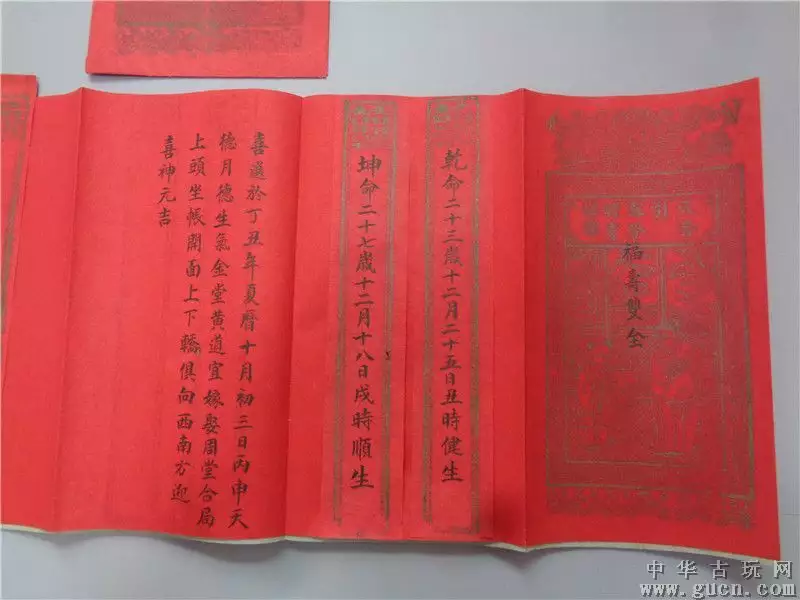 福壽雙全
乾命二十三歲十二月二十五日丑時健生
坤命二十七歲十二月十八日戌時順生
喜選於丁丑年夏曆十月初三日丙申天
德月德生氣金堂黄道宜嫁娶周堂合局
上頭坐帳開面上下轎俱向西南方迎
喜神元吉
中华古玩网
www.gucn.com